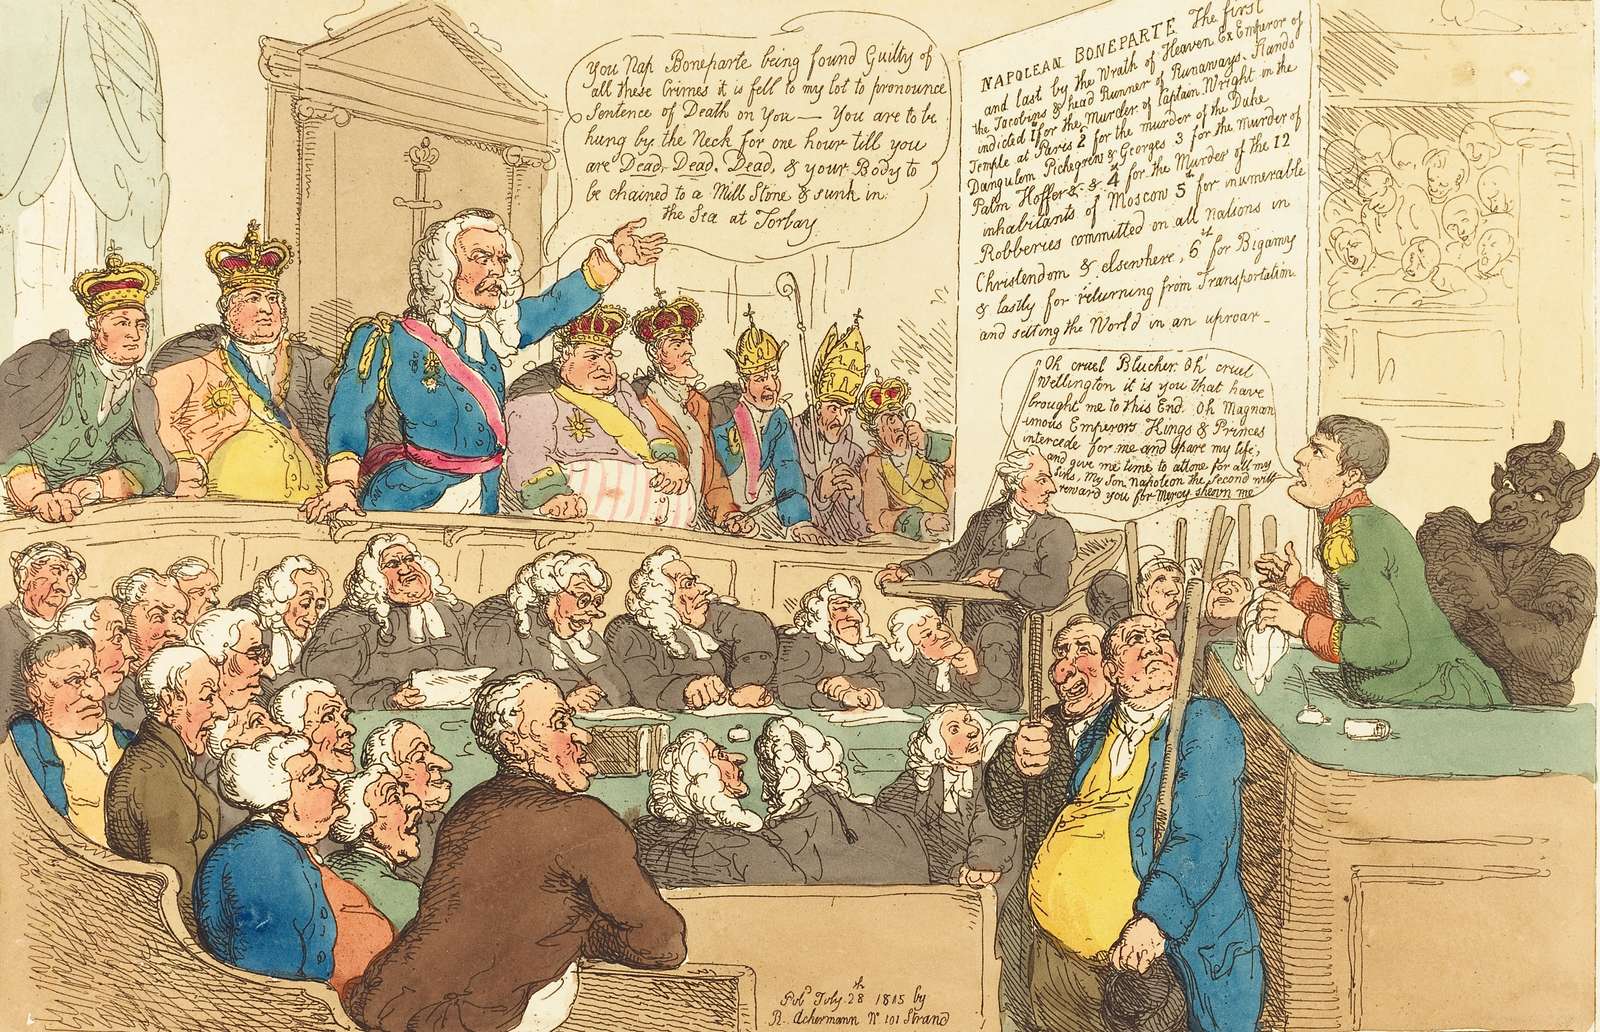 You Nap Boneparte being found Guilty of
all these Crimes it is fell to my lot to pronounce
Sentence of Death on You — You are to be
hung by the Neck for one hour till you
are Dead, Dead, Dead, & your Body to
be chained to a Mill Stone & sunk in
the Sea at Torbay
NAPOLEAN BONEPARTE The first
and last by the Wrath of Heaven Ex Emperor of
the Jacobins & head Runner of Runaways. Stands
indicted 1st for the Murder of Captain Wright in the
Temple at Paris 2 for the murder of the Duke
Dangulem Pichegrew & Georges 3 for the Murder of
Palm Hoffer &c &c 4 for the Murder of the 12
inhabitants of Moscow 5th for inumerable
Robberies committed on all Nations in
Christendom & elsewhere, 6th for Bigamy
& lastly for returning from Transportation
and setting the World in an uproar —
Oh cruel Blucher. Oh cruel
Wellington it is you that have
brought me to this End. Oh Magnan
imous Emperors Kings & Princes
intercede for me and spare my life,
and give me time to attone for all my
Sins, My Son Napoleon the Second will
reward you for Mercy shewn me
Pubd July 28th 1815 by
R. Ackermann No 101 Strand